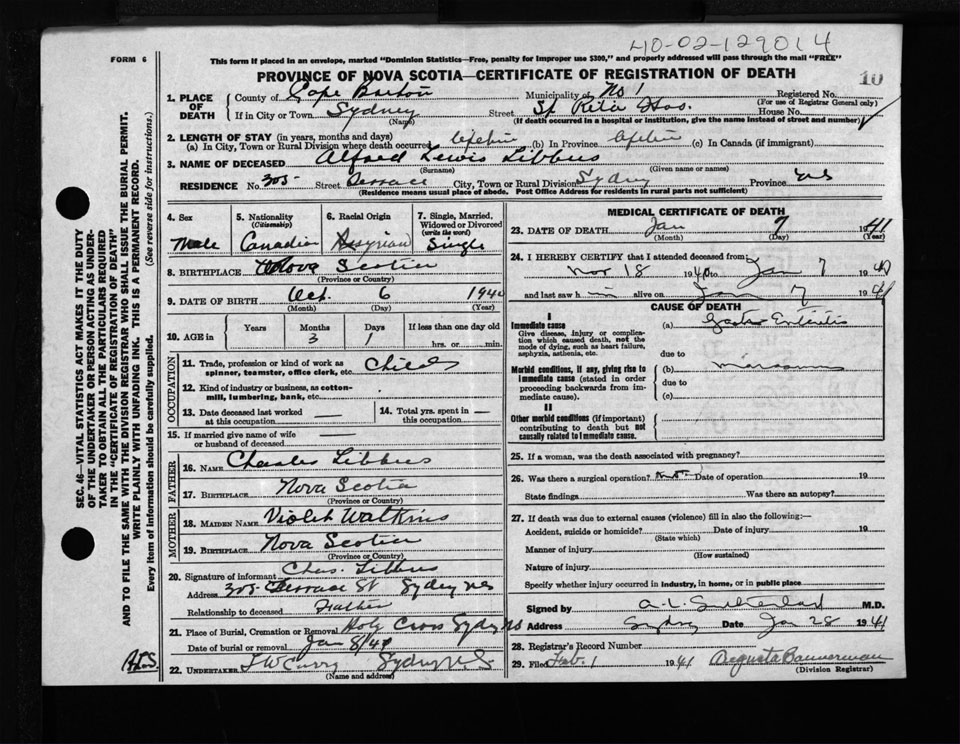 40-02-129014
FORM 6
This form if placed in an envelope, marked "Dominion Statistics—Free, penalty for improper use $300," and properly addressed will pass through the mail "FREE"
PROVINCE OF NOVA SCOTIA—CERTIFICATE OF REGISTRATION OF DEATH
10
1. PLACE OF DEATH
County of Cape Breton Municipality of No 1 Registered No.
(For use of Registrar General only)
If in City or Town Sydney Street St Rita Hos. House No.
(Name) (If death occurred in a hospital or institution, give the name instead of street and number)
2. LENGTH OF STAY (in years, months and days)
(a) In City, Town or Rural Division where death occurred lifetime (b) In Province lifetime (c) In Canada (if immigrant)
3. NAME OF DECEASED Alfred Lewis Libbus
(Surname) (Given name or names)
RESIDENCE No. 305 Street Terrace City, Town or Rural Division Sydney Province NS
(Residence means usual place of abode. Post Office Address for residents in rural parts not sufficient)
4. Sex Male
5. Nationality (Citizenship) Canadian
6. Racial Origin Assyrian
7. Single, Married, Widowed or Divorced (write the word) Single
8. BIRTHPLACE Nova Scotia
(Province or Country)
9. DATE OF BIRTH Oct. 6 1940
(Month) (Day) (Year)
10. AGE in Years Months 3 Days 1 If less than one day old hrs. or min.
OCCUPATION
11. Trade, profession or kind of work as spinner, teamster, office clerk, etc. Child
12. Kind of industry or business, as cotton-mill, lumbering, bank, etc.
13. Date deceased last worked at this occupation —
14. Total yrs. spent in this occupation —
15. If married give name of wife or husband of deceased —
FATHER
16. NAME Charles Libbus
17. BIRTHPLACE Nova Scotia
(Province or Country)
MOTHER
18. MAIDEN NAME Violet Watkins
19. BIRTHPLACE Nova Scotia
(Province or Country)
20. Signature of informant Chas. Libbus
Address 305 Terrace St Sydney NS
Relationship to deceased Father
21. Place of Burial, Cremation or Removal Holy Cross Sydney NS
Date of burial or removal Jan 8/41
22. UNDERTAKER T W Curry Sydney N.S
(Name and address)
MEDICAL CERTIFICATE OF DEATH
23. DATE OF DEATH Jan 7 1941
(Month) (Day) (Year)
24. I HEREBY CERTIFY that I attended deceased from
Nov 18 1940 to Jan 7 1941
and last saw h im alive on Jan 7 1941
CAUSE OF DEATH
I
Immediate cause (a) Gastro Enteritis
Give disease, injury or complication which caused death, not the mode of dying, such as heart failure, asphyxia, asthenia, etc.
due to
Morbid conditions, if any, giving rise to immediate cause (stated in order proceeding backwards from immediate cause). (b) Marasmus
due to
(c)
II
Other morbid conditions (if important) contributing to death but not causally related to immediate cause.
25. If a woman, was the death associated with pregnancy?
26. Was there a surgical operation? Date of operation 19
State findings Was there an autopsy?
27. If death was due to external causes (violence) fill in also the following:—
Accident, suicide or homicide? Date of injury 19
(State which)
Manner of injury
(How sustained)
Nature of injury
Specify whether injury occurred in industry, in home, or in public place
Signed by A. L. Sutherland M.D.
Address Sydney Date Jan 28 1941
28. Registrar's Record Number
29. Filed Feb. 1 1941 Augusta Bannerman
(Division Registrar)
SEC. 46—VITAL STATISTICS ACT MAKES IT THE DUTY
OF THE UNDERTAKER OR PERSON ACTING AS UNDER-
TAKER TO OBTAIN ALL THE PARTICULARS REQUIRED
IN THE "CERTIFICATE OF REGISTRATION OF DEATH"
AND TO FILE THE SAME WITH THE DIVISION REGISTRAR WHO SHALL ISSUE THE BURIAL PERMIT.
WRITE PLAINLY WITH UNFADING INK. THIS IS A PERMANENT RECORD.
Every item of information should be carefully supplied. (See reverse side for instructions.)